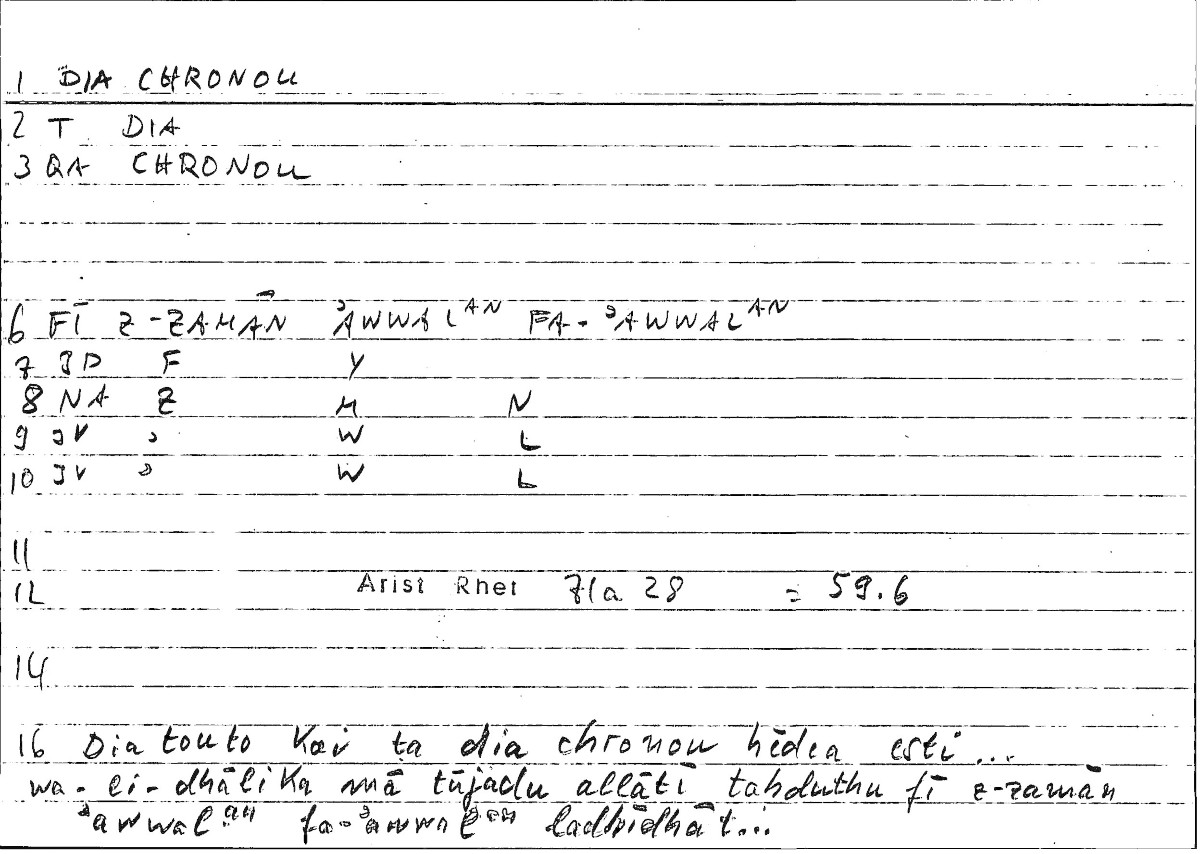 1 DIA CHRONOU
2 T DIA
3 QA CHRONOU
6 FĪ Z-ZAMĀN ʾAWWALᴬᴺ FA-ʾAWWALᴬᴺ
7 JP F Y
8 NA Z M N
9 JV ʾ W L
10 JV ʾ W L
11
12 Arist Rhet 71a 28 = 59.6
14
16 Dia touto kai ta dia chronou hēdea esti...
wa-li-dhālika mā tūjadu allātī tahduthu fī z-zamān
ʾawwalᵃⁿ fa-ʾawwalᵃⁿ ladhīdhāt...